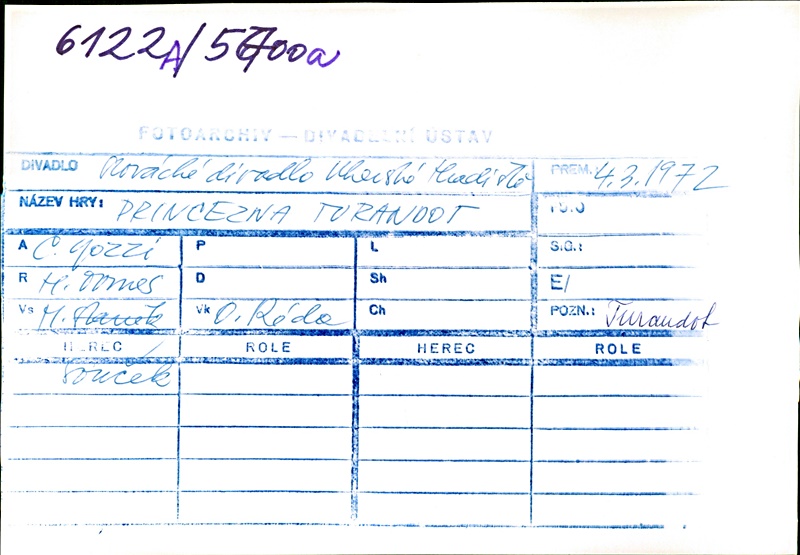 6122A/56700a
FOTOARCHIV — DIVADELNÍ ÚSTAV
DIVADLO Slovácké divadlo Uherské Hradiště PREM. 4.3.1972
NÁZEV HRY: PRINCEZNA TURANDOT
A C. Gozzi P L S.G.:
R M. Domes D Sh E/
Vs M. Vk O. Réda Ch POZN.: Turandot
HEREC ROLE HEREC ROLE
Souček